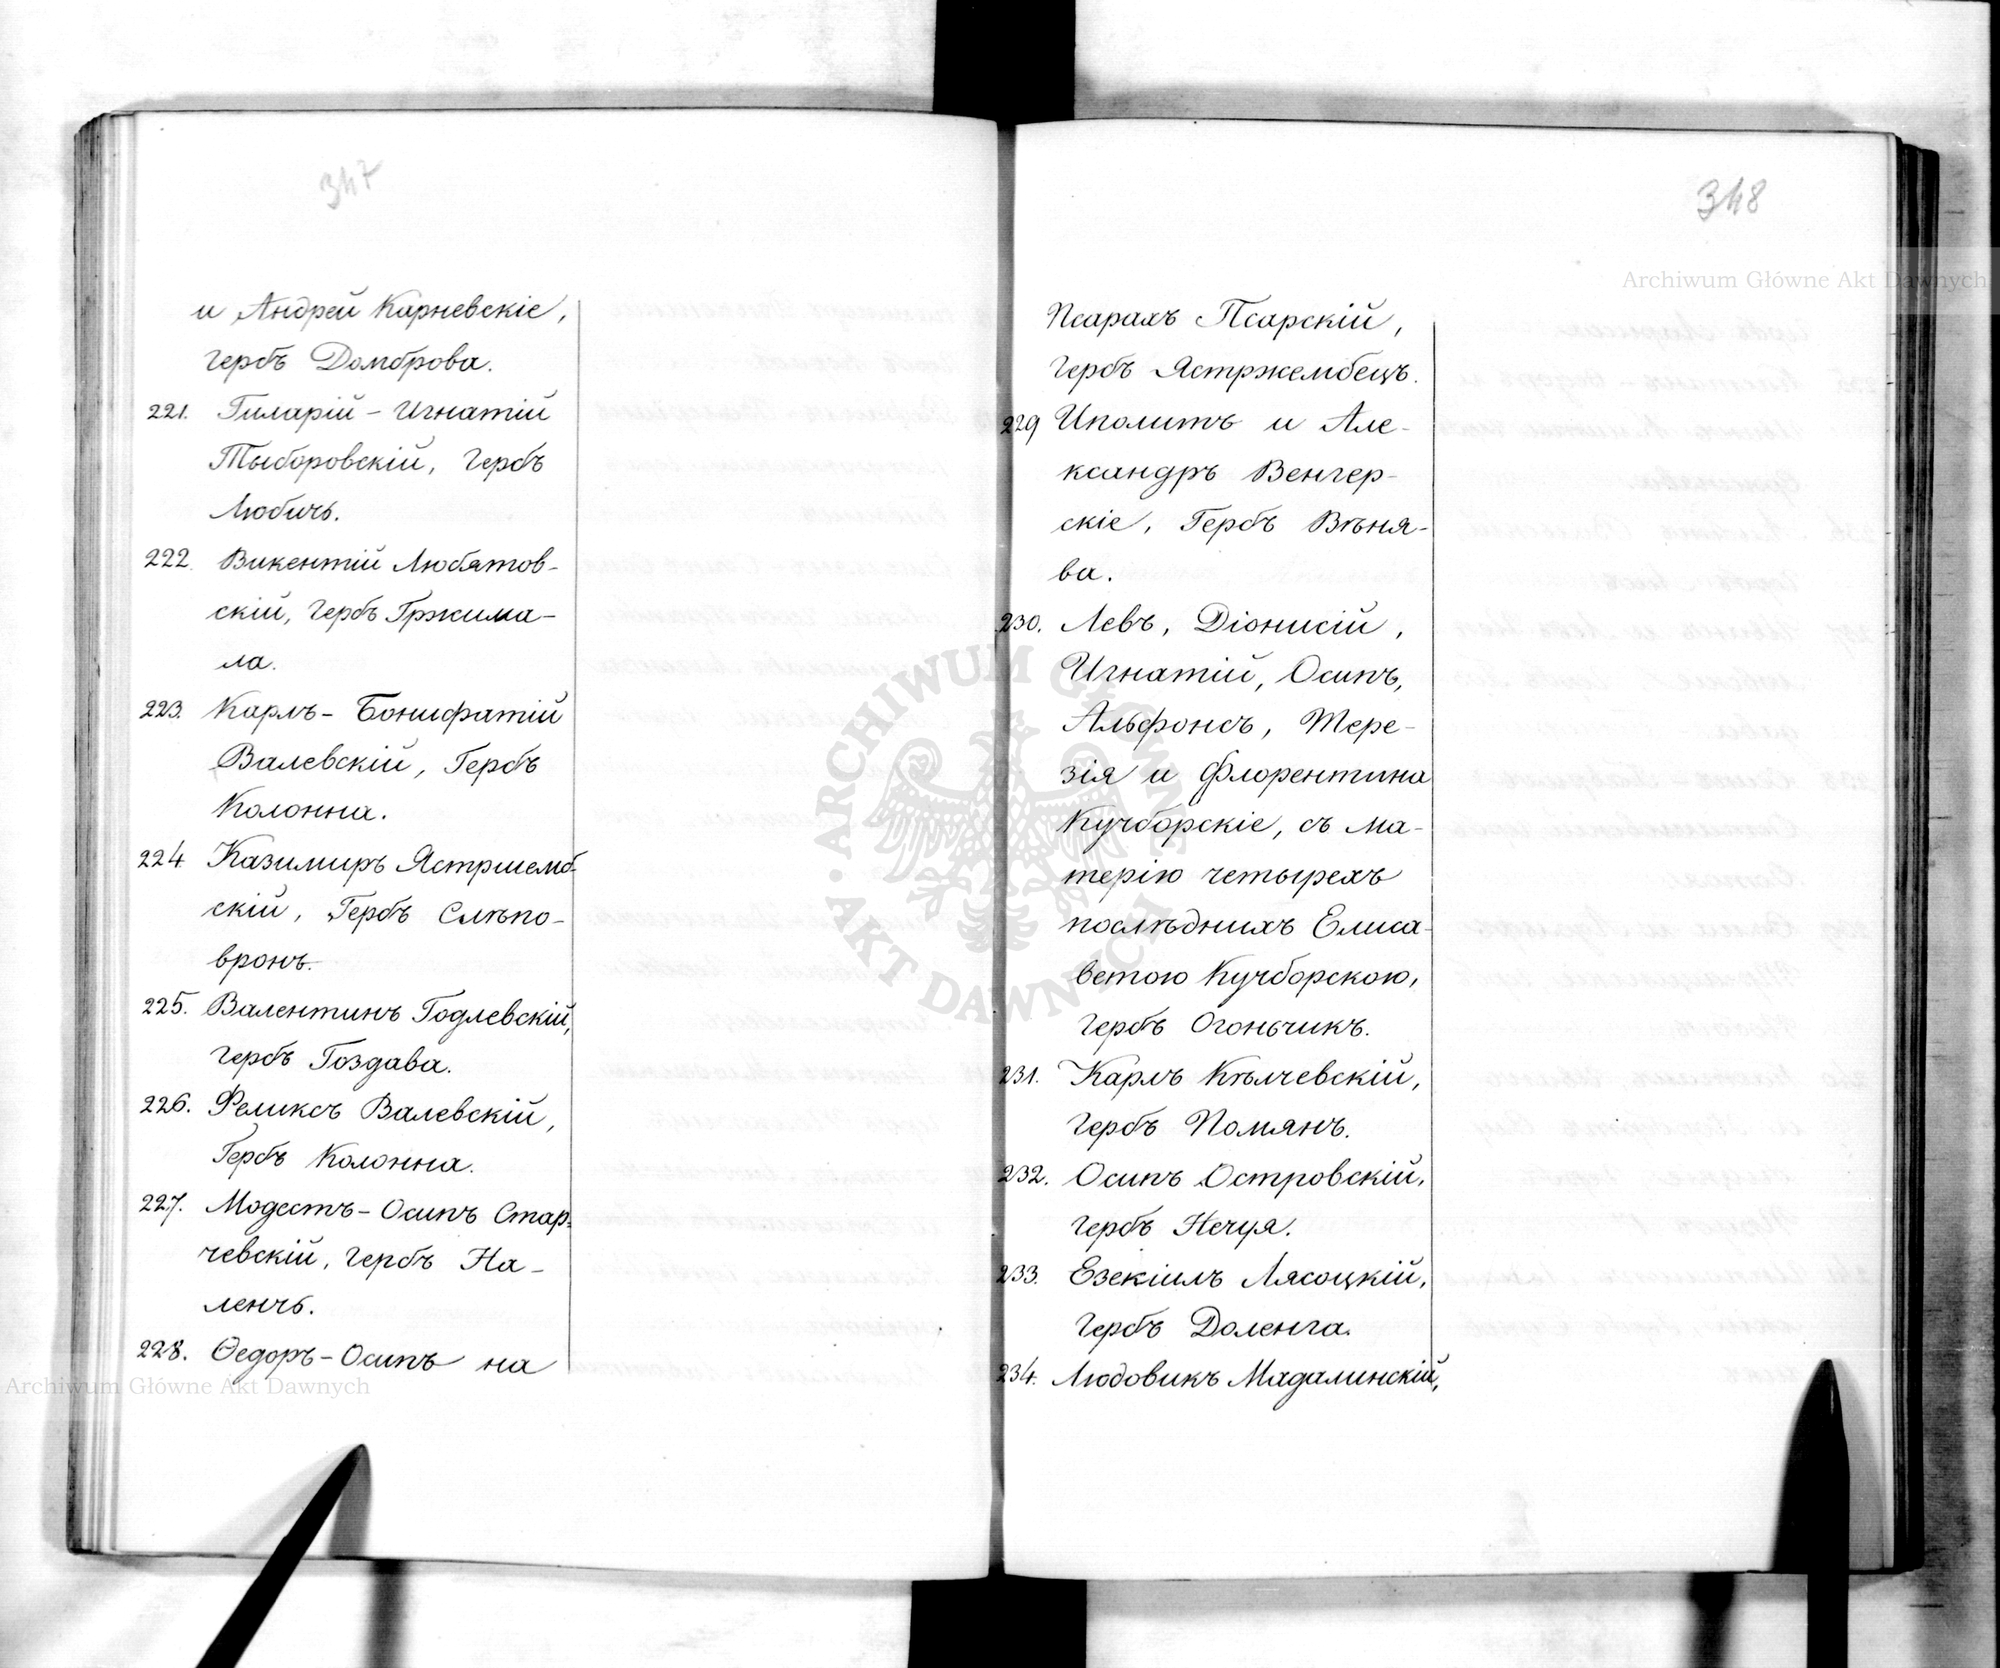 347
и Андрей Карневскіе,
гербъ Домброва.
221. Гиларій - Игнатій
Тыборовскій, гербъ
Любичъ.
222. Викентій Любятов-
скій, гербъ Гржима-
ла.
223. Карлъ - Бонифатій
Валевскій, Гербъ
Колонна.
224 Казимиръ Ястршемб-
скій, Гербъ Слѣпо-
вронъ.
225. Валентинъ Годлевскій,
гербъ Гоздава.
226. Феликсъ Валевскій,
Гербъ Колонна.
227. Модестъ - Осипъ Стар-
чевскій, гербъ На-
ленчъ.
228. Ѳедоръ - Осипъ на
348
Псарахъ Псарскій,
гербъ Ястржембецъ.
229 Иполитъ и Але-
ксандръ Венгер-
скіе, Гербъ Вѣня-
ва.
230. Левъ, Діонисій,
Игнатій, Осипъ,
Альфонсъ, Тере-
зія и Флорентина
Кучборскіе, съ ма-
терію четырехъ
послѣднихъ Елиса-
ветою Кучборскою,
гербъ Огоньчикъ.
231. Карлъ Кѣлчевскій,
гербъ Помянъ.
232. Осипъ Островскій,
гербъ Нечуя.
233. Езекіилъ Лясоцкій,
гербъ Доленга.
234. Людовикъ Мадалинскій,
Archiwum Główne Akt Dawnych
Archiwum Główne Akt Dawnych
ARCHIWUM GŁÓWNE
AKT DAWNYCH